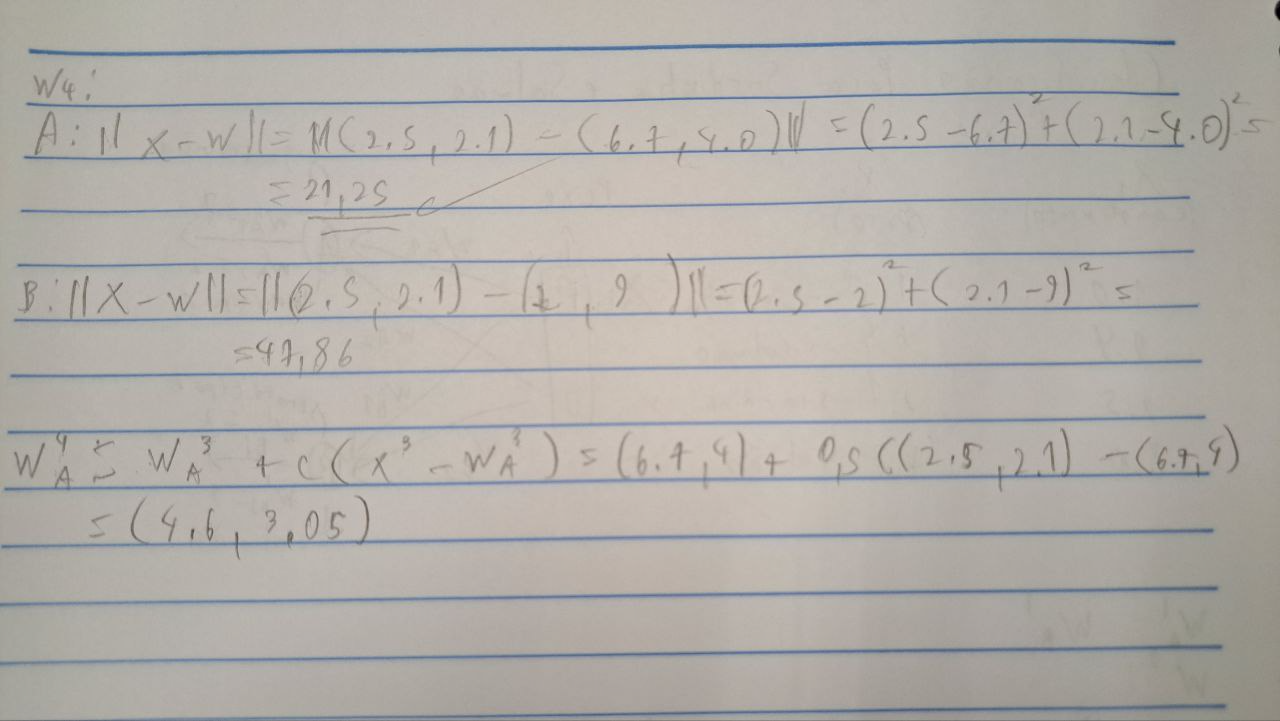 W4:
A: || x - w || = ||(2.5, 2.1) - (6.7, 4.0)|| = (2.5 - 6.7)² + (2.1 - 4.0)² =
= 21,25
B: || X - W || = ||(2.5, 2.1) - (2, 9)|| = (2.5 - 2)² + (2.1 - 9)² =
= 47,86
W_A⁴ = W_A³ + c(x³ - W_A³) = (6.7, 4) + 0,5((2.5, 2.1) - (6.7, 4)
= (4.6, 3.05)